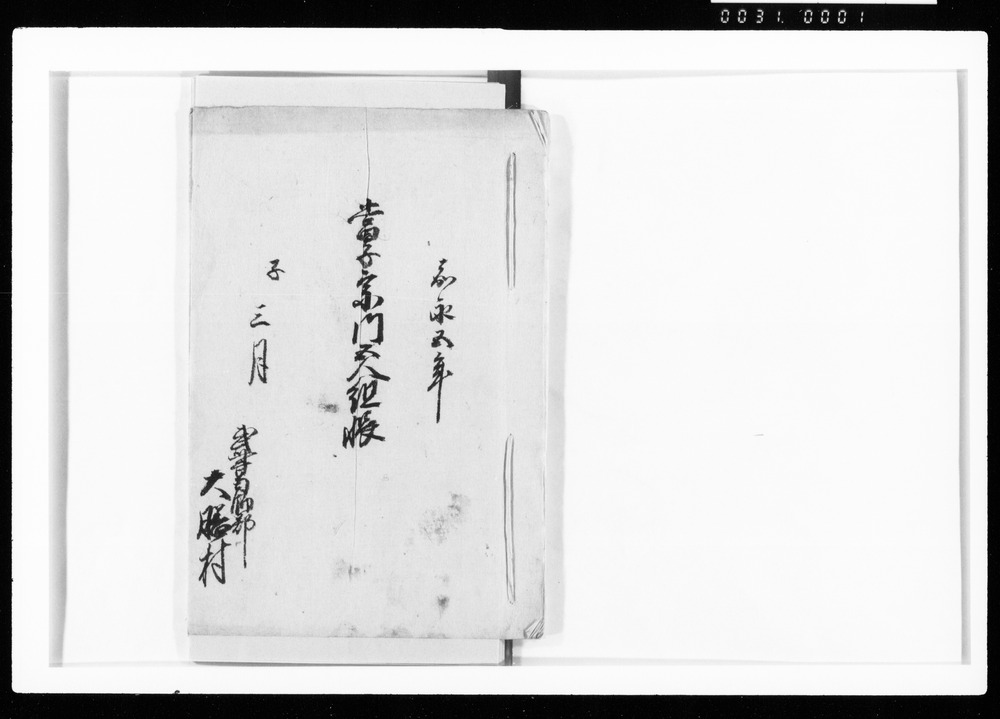 0031. 0001
嘉永五年
當子宗門五人組帳
子
三月
武州葛飾郡
大膳村